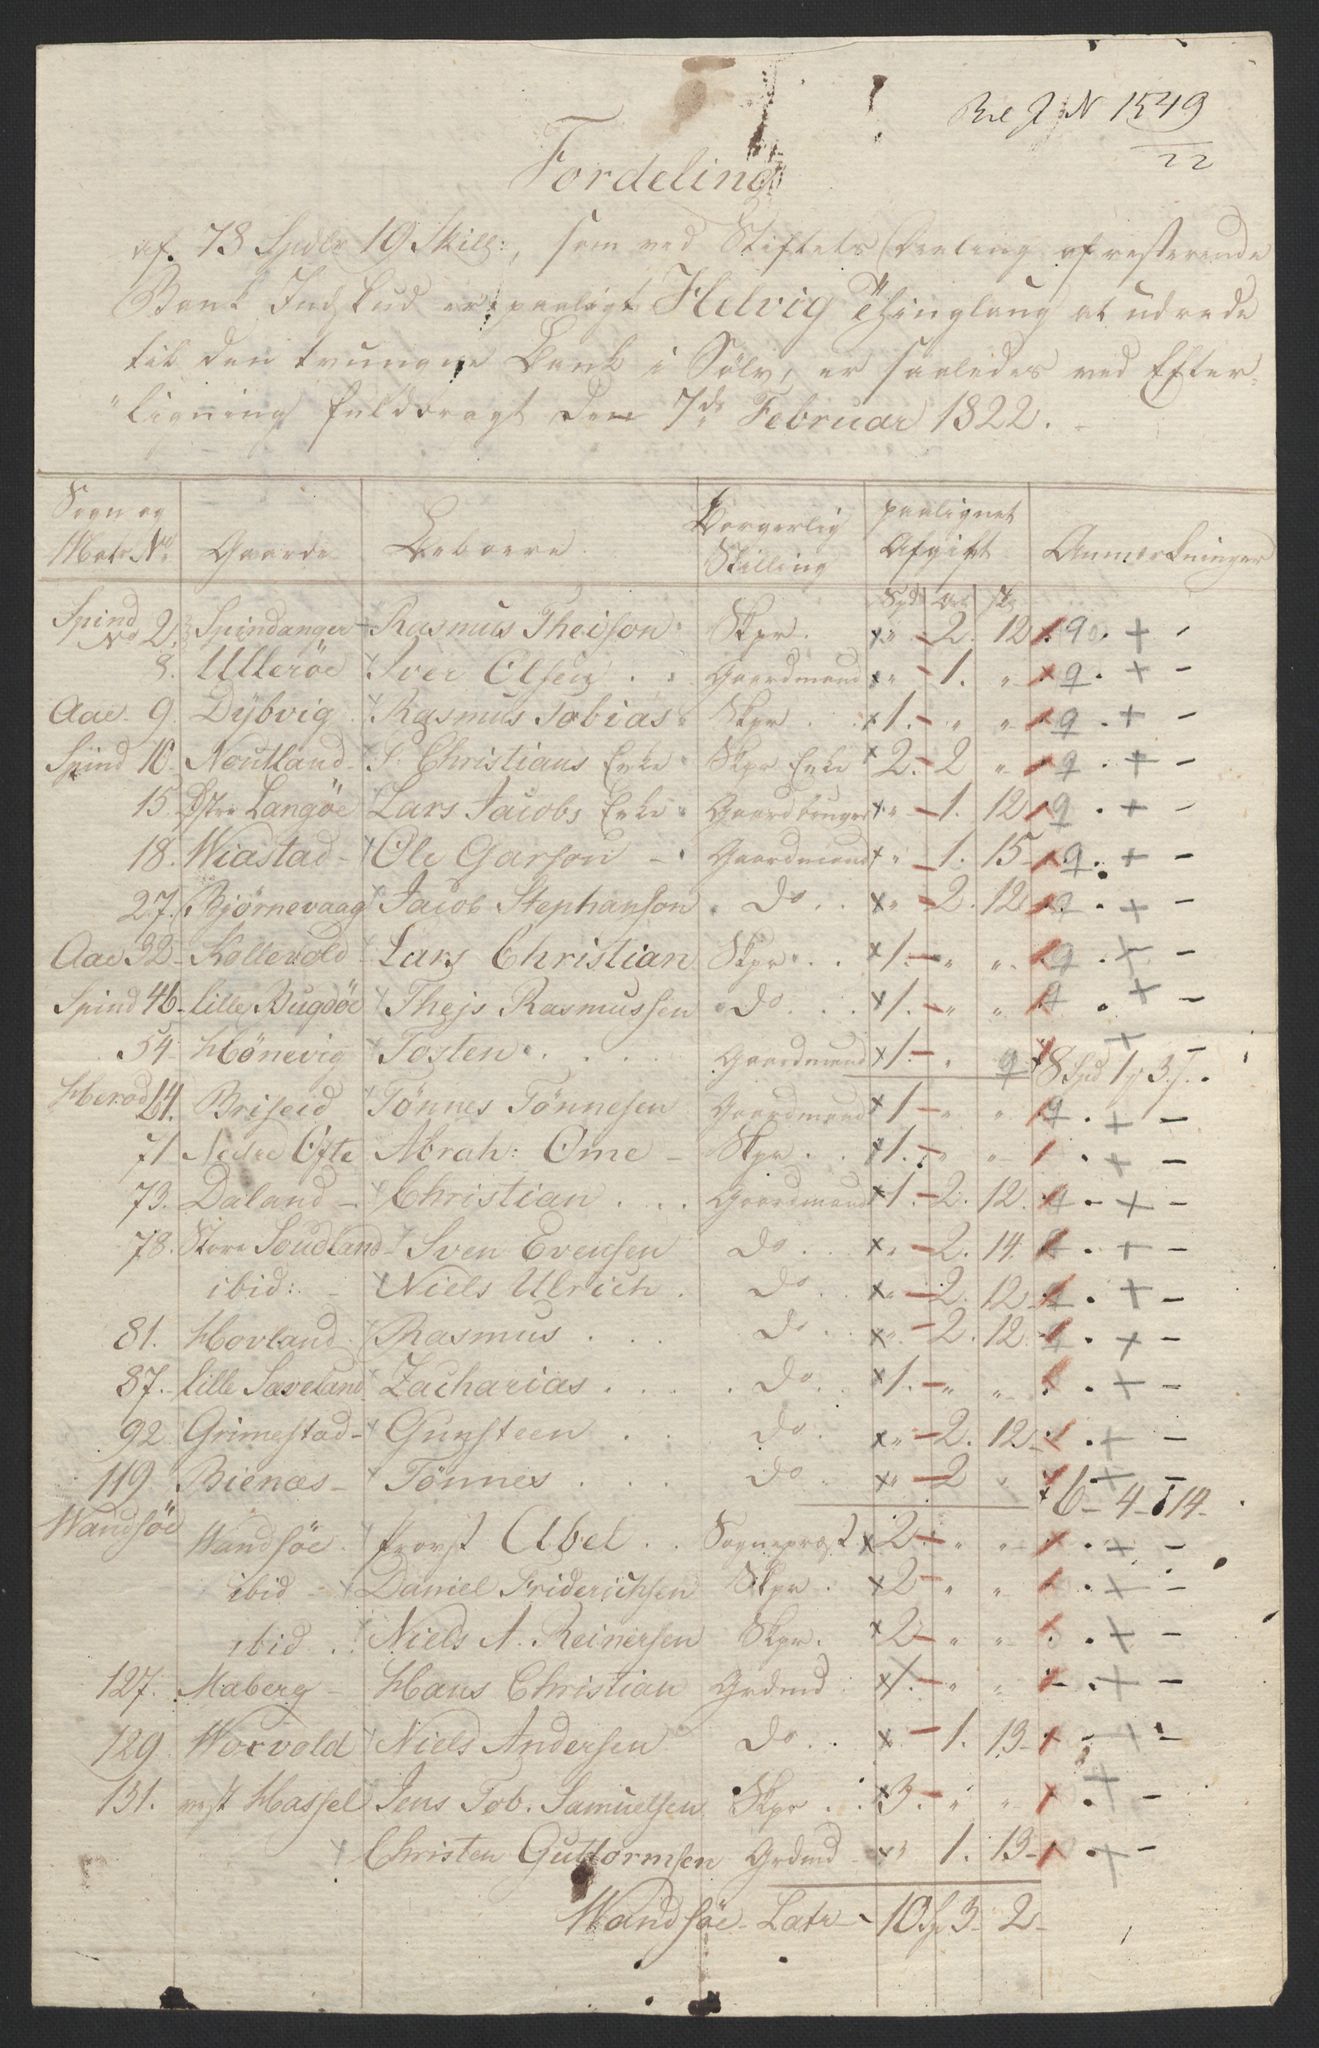 Bil J. N 1549
22
Fordeling
af 73 Spdlr 19 Skill:, som ved Stiftets Deeling af resterende
Bank Indskud er paaligt Helvig Thinglaug at udrede
til den trungne Bank i Sølv, er saaledes ved Efter-
ligning fuldbragt den 7de Februar 1822.
Sogn og Matr No Gaarde Beboere Borgerlig Stilling paalignet Afgift Anmærkninger
Spd Ort ß
Spind No 2. Spindanger Rasmus Theison Skpr. " 2. 12
8. Ullerøe Iver Olsen Gaardmand " 1. "
Aae 9 Dybvig Rasmus Tobias Skpr 1. " "
Spind 10 Noutland S. Christians Enke Skpr Enke 2. 2 "
15. Østre Langøe Lars Jacobs Enke Gaardbruger " 1. 12
18. Wiastad Ole Garson Gaardmand " 1. 15
27. Bjørnevaag Jacob Stephanson Do " 2. 12
Aae 32 Kollevold Lars Christian Skpr 1. " "
Spind 46 lille Bugdøe Thejs Rasmussen Do 1. " "
54 Hønevig Tosten Gaardmand 1. " 9 8 Spd 1 3
Herod 64. Briseid Tønnes Tønnesen Gaardmand 1 " "
71 Nedre Ofte Abrah: Ome Skpr 1. " "
73. Daland Christian Gaardmand 1. 2. 12.
78. Store Soudland Sven Evensen Do " 2. 14.
ibid: Niels Ulrich Do " 2. 12
81. Hovland Rasmus Do " 2. 12
87. lille Sæveland Zacharias Do 1. " "
92 Grimestad Gunsteen Do " 2. 12
119 Bienæs Tønnes Do " 2 " 6 - 4 - 14
Wandsøe Wandsøe Provst Abel Sognepræst 2 " "
ibid Daniel Friderichsen Skpr 2 " "
ibid Niels A. Reinersen Skpr. 2 " "
127. Maberg Hans Christian Grdmd 1 " "
129 Worvold Niels Andersen Do 1. 13
131. vest Hassel Jens Tob. Samuelsen Skpr 3. " "
Christen Guttormsen Grdmd " 1. 13
Wandsøe Latr 10 Sp 3 - 2